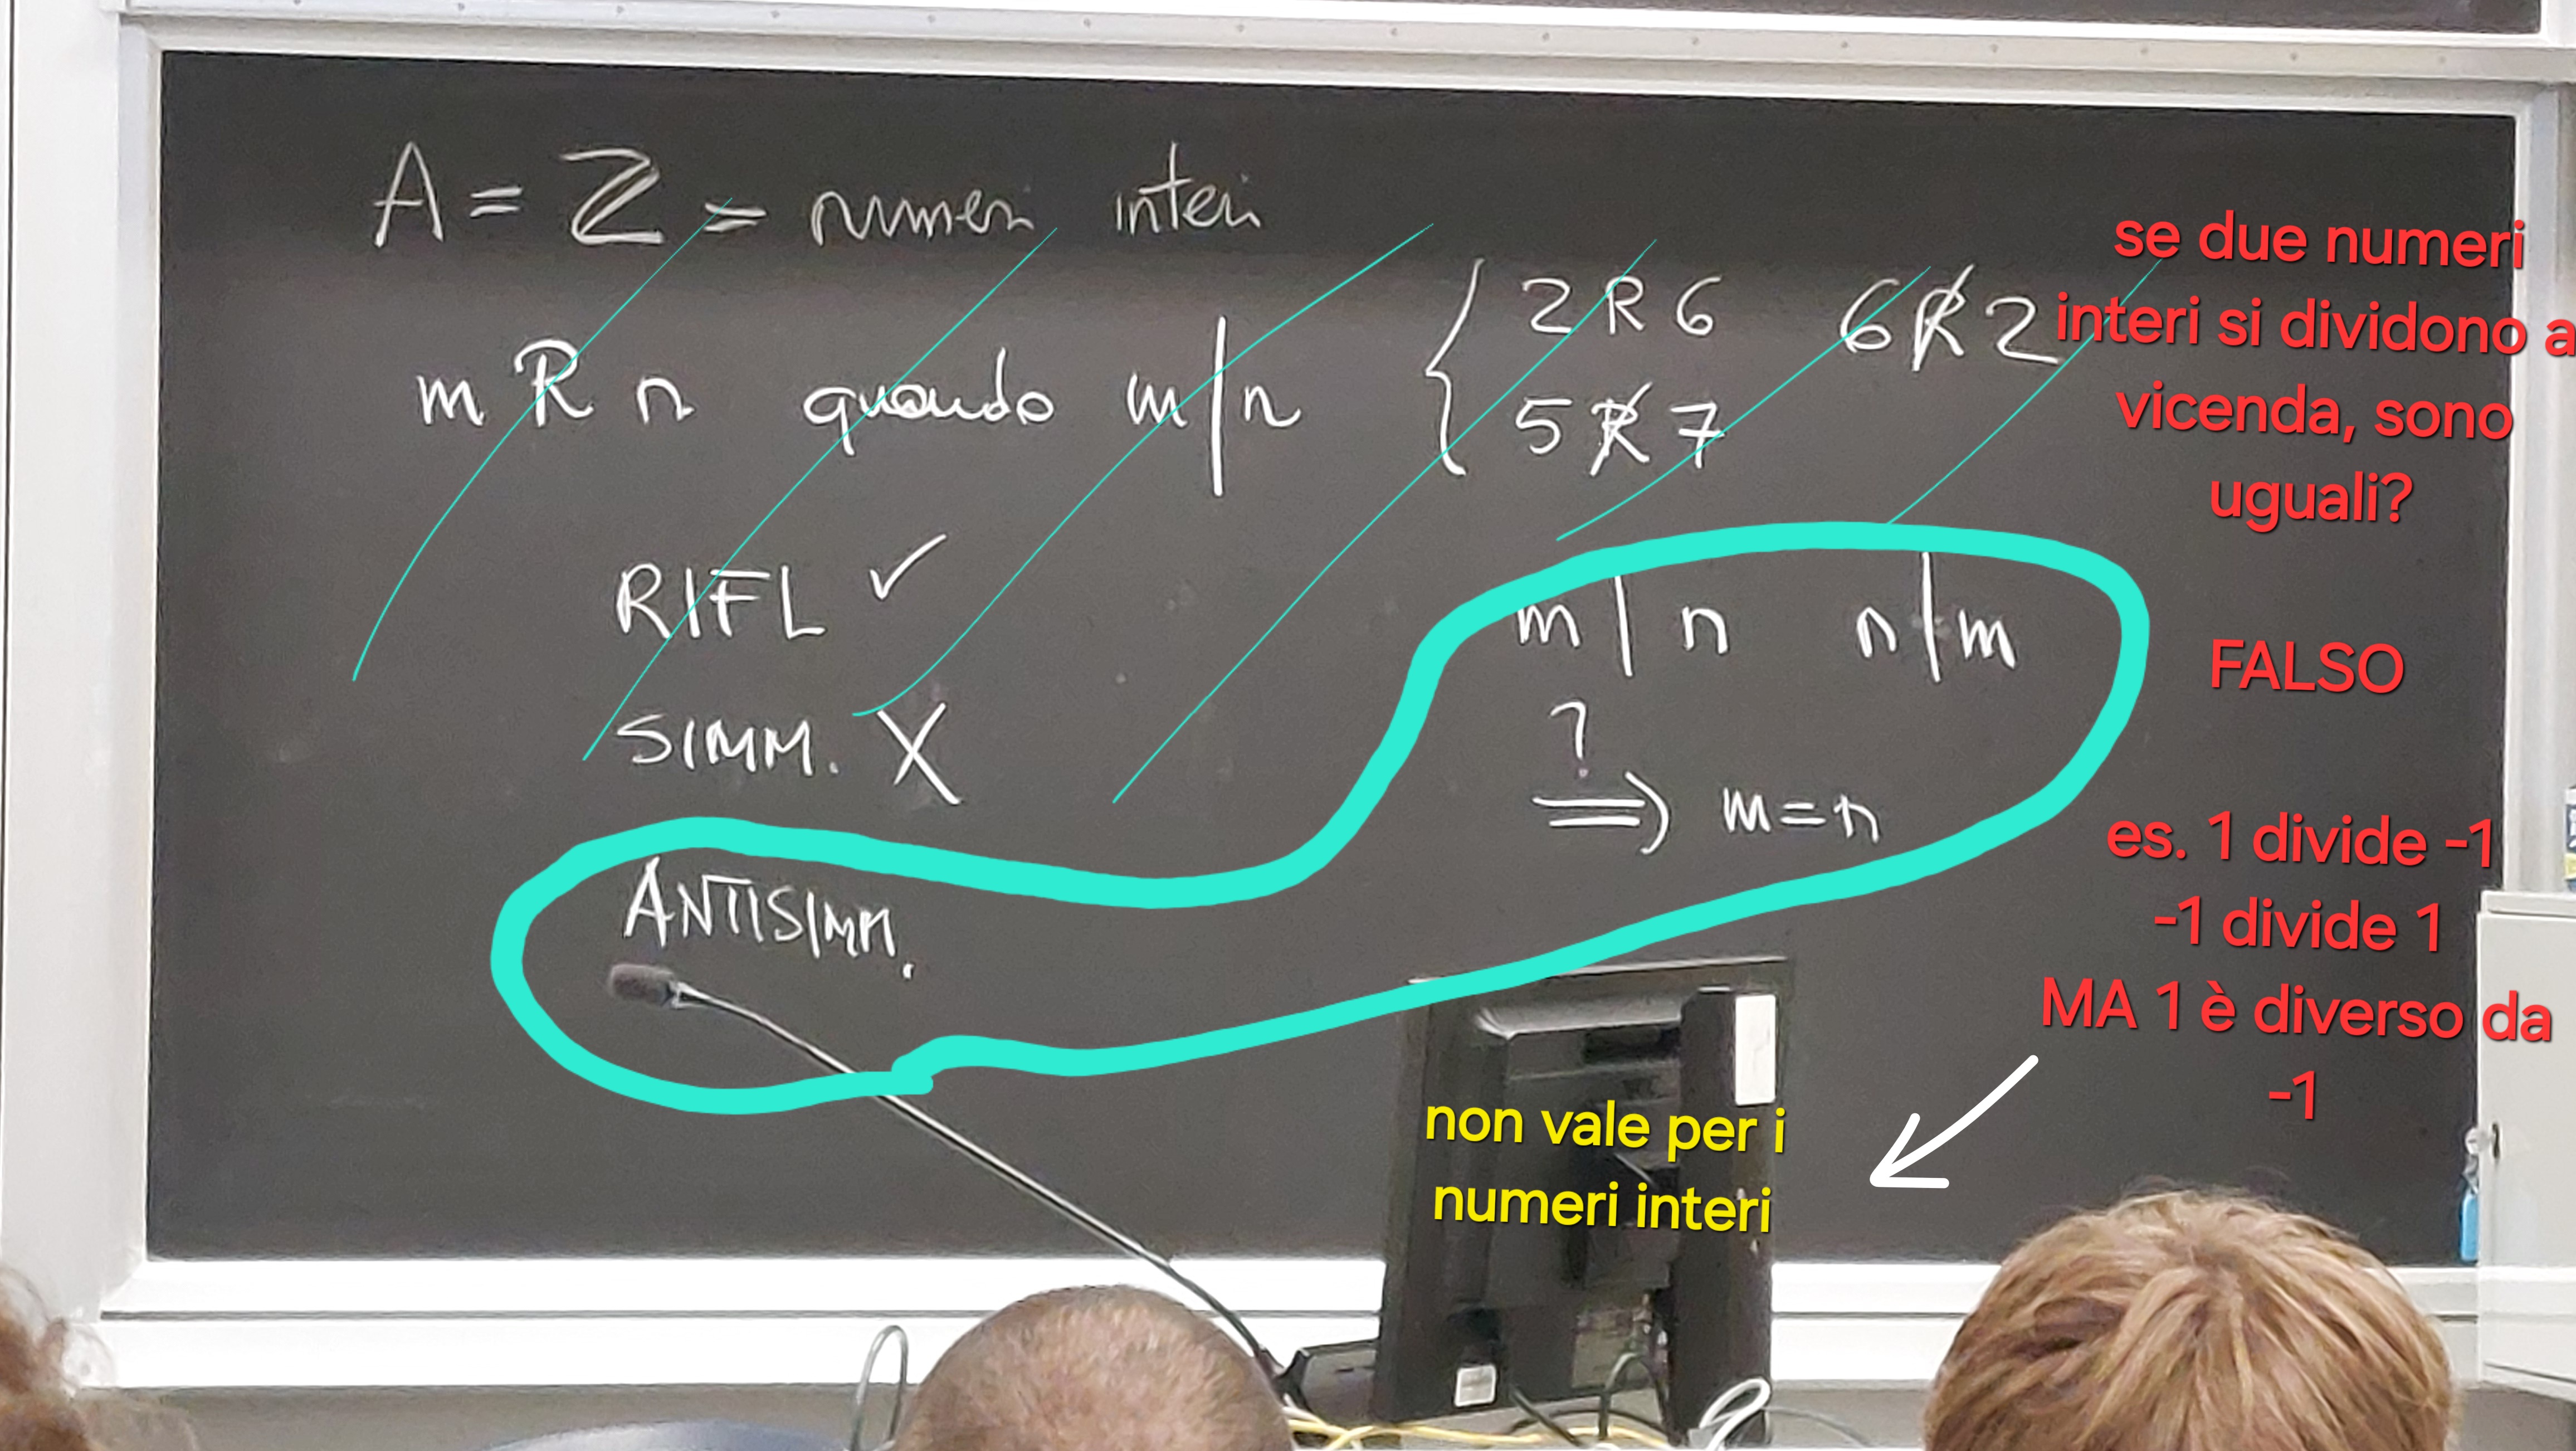 A = Z = numeri interi
m R n quando m | n
2 R 6 6 R̸ 2
5 R̸ 7
RIFL ✓
SIMM. X
ANTISIMM.
m | n n | m
?
⟹ m = n
se due numeri
interi si dividono a
vicenda, sono
uguali?
FALSO
es. 1 divide -1
-1 divide 1
MA 1 è diverso da
-1
non vale per i
numeri interi